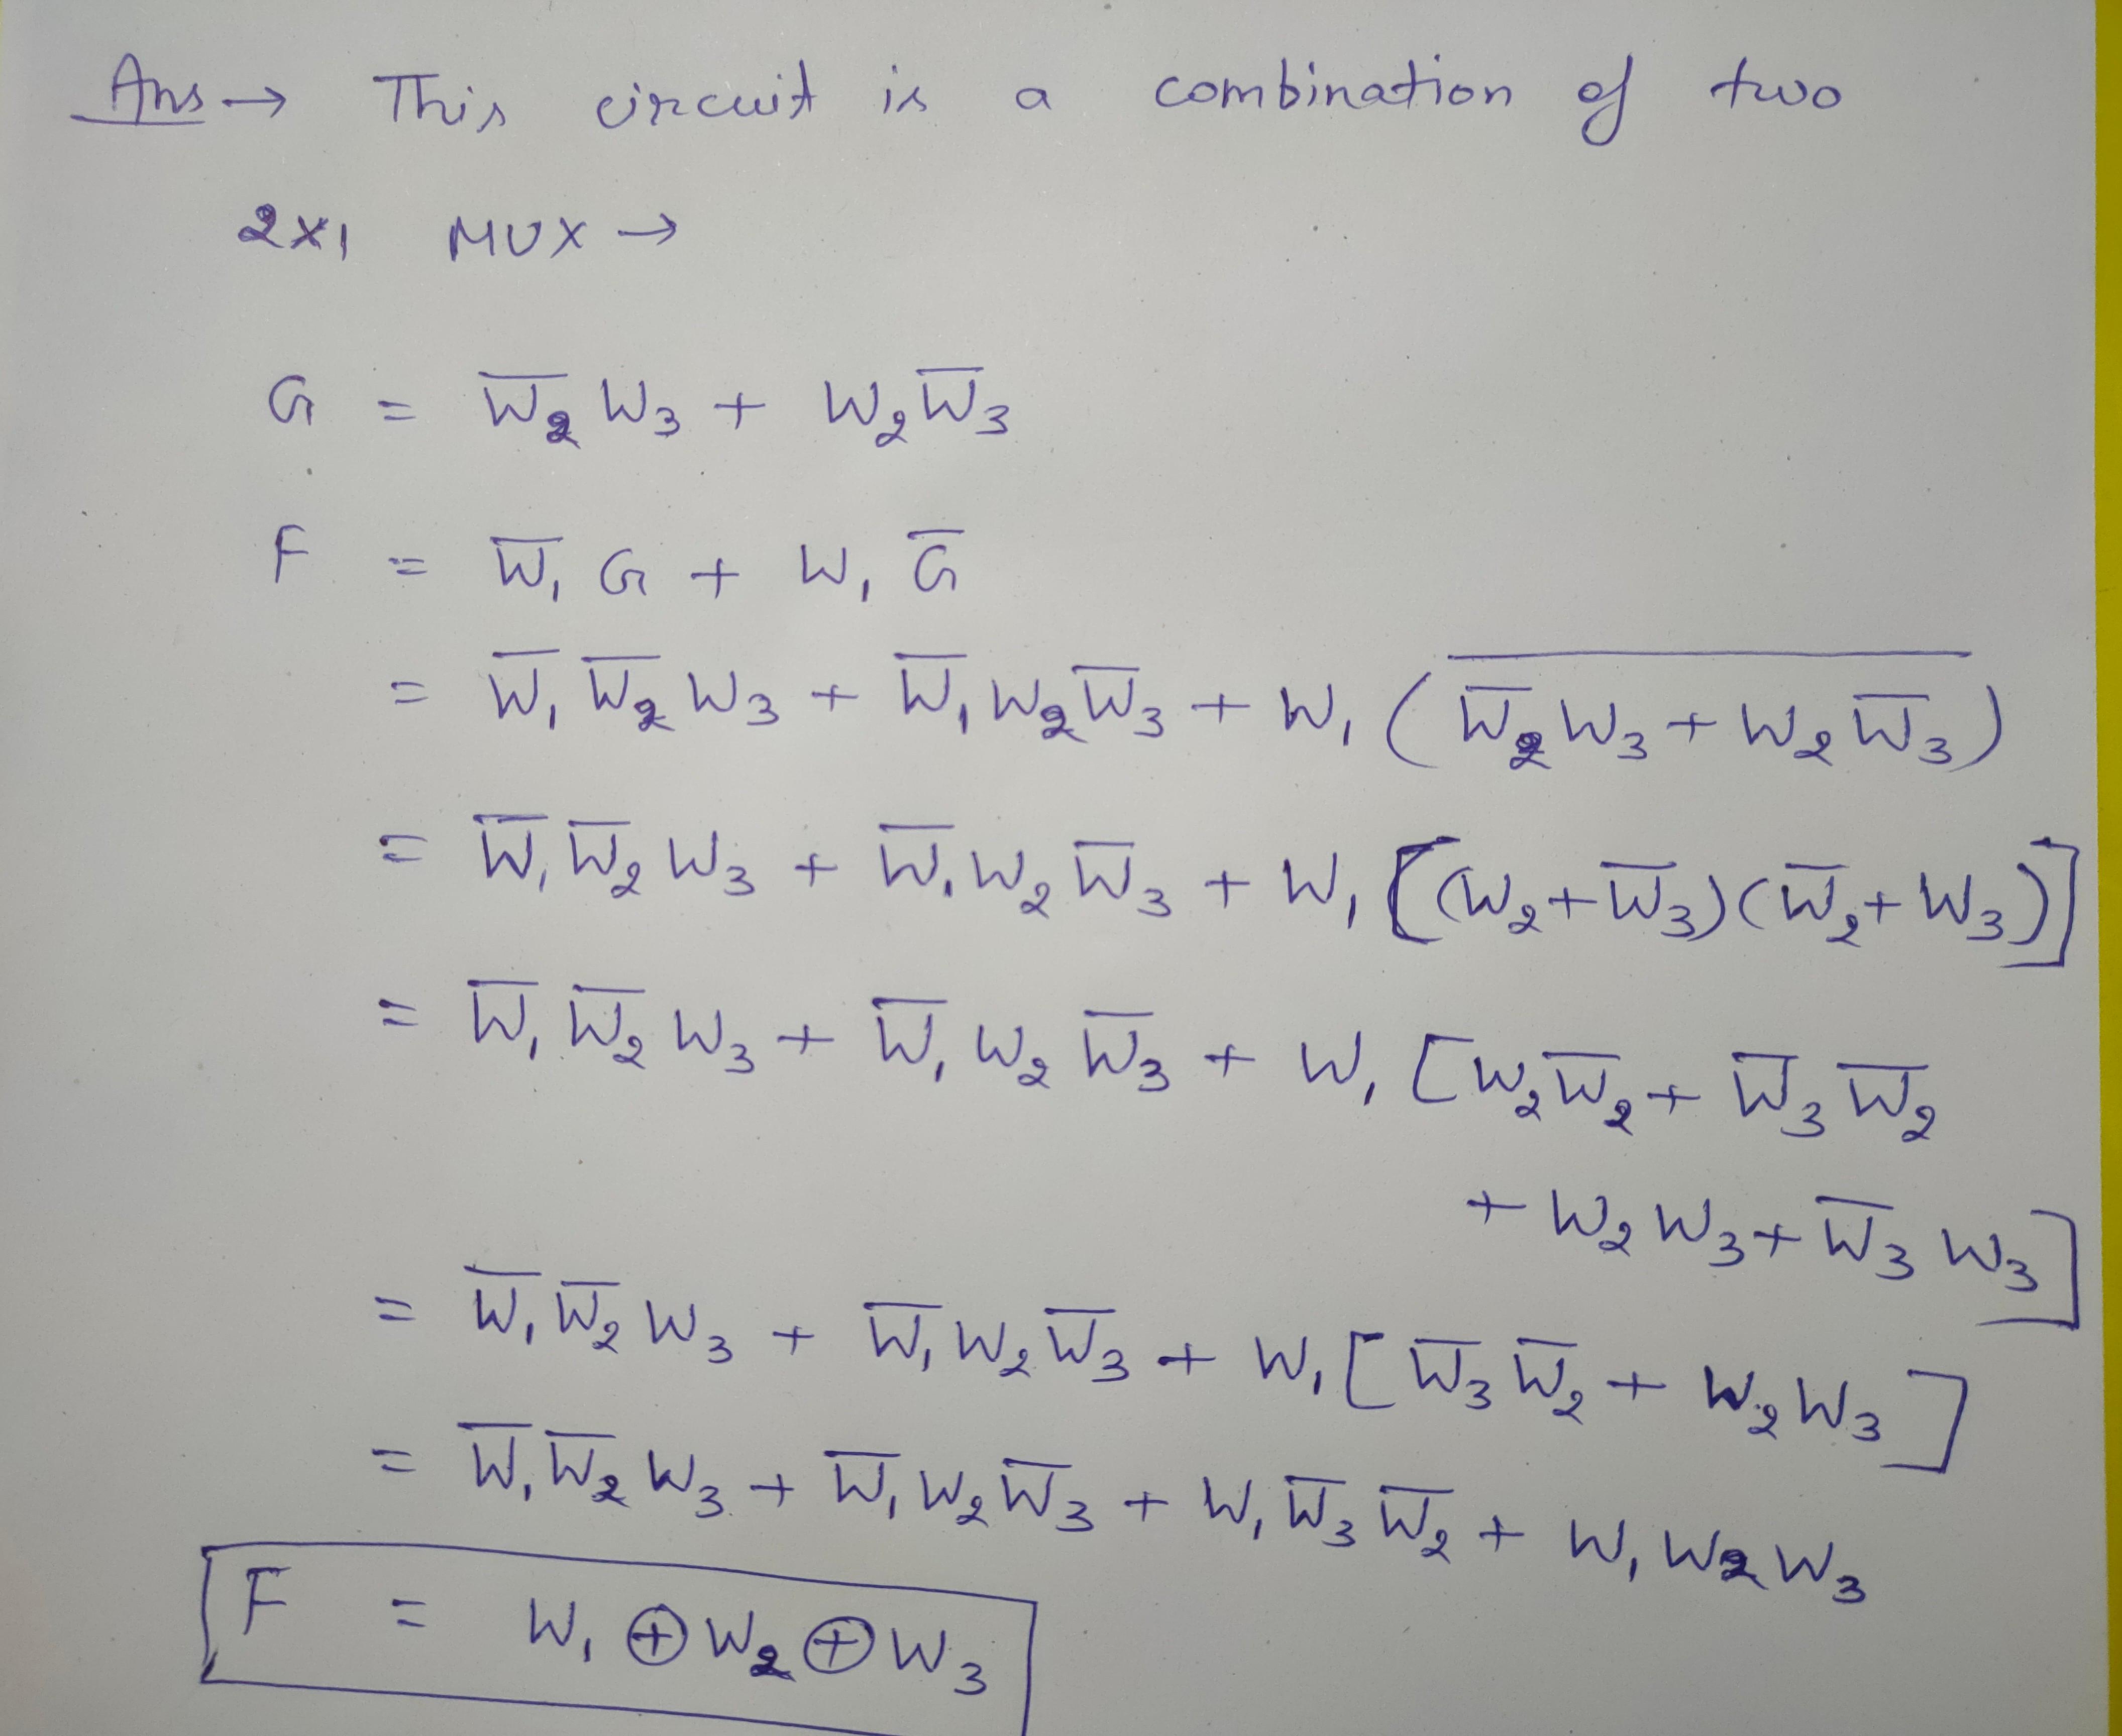 Ans → This circuit is a combination of two
2x1 MUX →
G = W̅₂ W₃ + W₂ W̅₃
F = W̅₁ G + W₁ G̅
= W̅₁ W̅₂ W₃ + W̅₁ W₂ W̅₃ + W₁ (\overline{W̅₂ W₃ + W₂ W̅₃})
= W̅₁ W̅₂ W₃ + W̅₁ W₂ W̅₃ + W₁ [(W₂ + W̅₃)(W̅₂ + W₃)]
= W̅₁ W̅₂ W₃ + W̅₁ W₂ W̅₃ + W₁ [W₂ W̅₂ + W̅₃ W̅₂
+ W₂ W₃ + W̅₃ W₃]
= W̅₁ W̅₂ W₃ + W̅₁ W₂ W̅₃ + W₁ [W̅₃ W̅₂ + W₂ W₃]
= W̅₁ W̅₂ W₃ + W̅₁ W₂ W̅₃ + W₁ W̅₃ W̅₂ + W₁ W₂ W₃
F = W₁ ⊕ W₂ ⊕ W₃